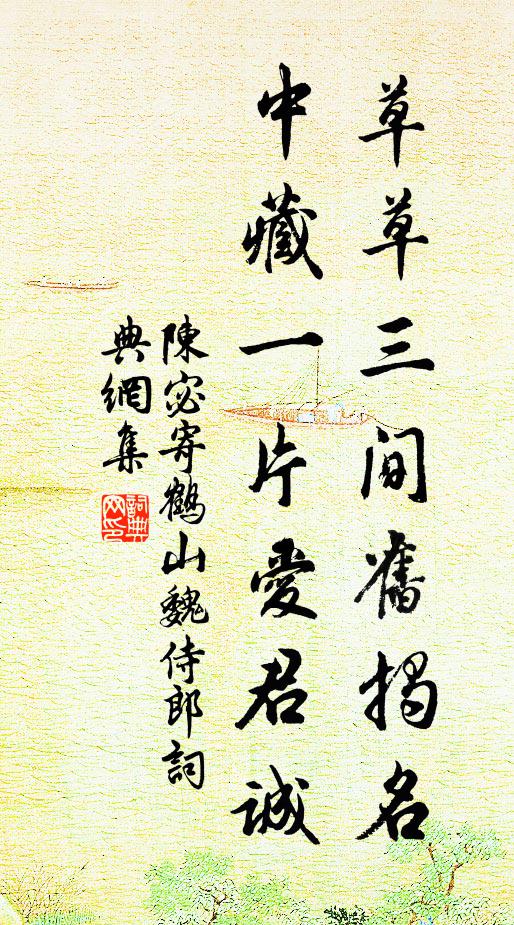 草草三間舊揭名
中藏一片愛君誠
陳宓寄鶴山魏侍郎詞
典網集
詞典網印